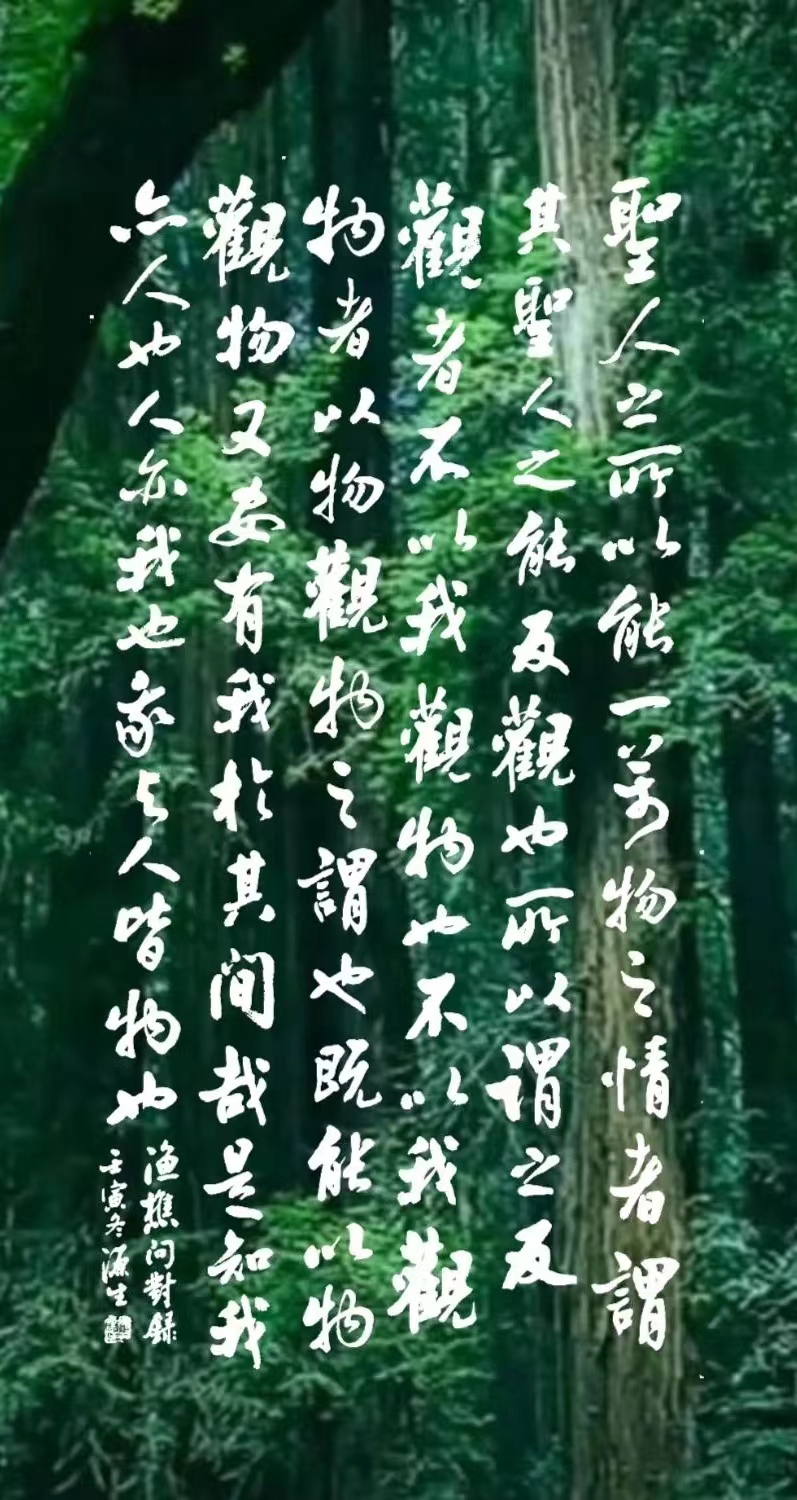 聖人之所以能一萬物之情者謂
其聖人之能反觀也所以谓之反
觀者不以我觀物也不以我觀
物者以物觀物之謂也既能以物
觀物又安有我於其间哉是知我
亦人也人亦我也我与人皆物也
渔樵问對録
壬寅冬源生